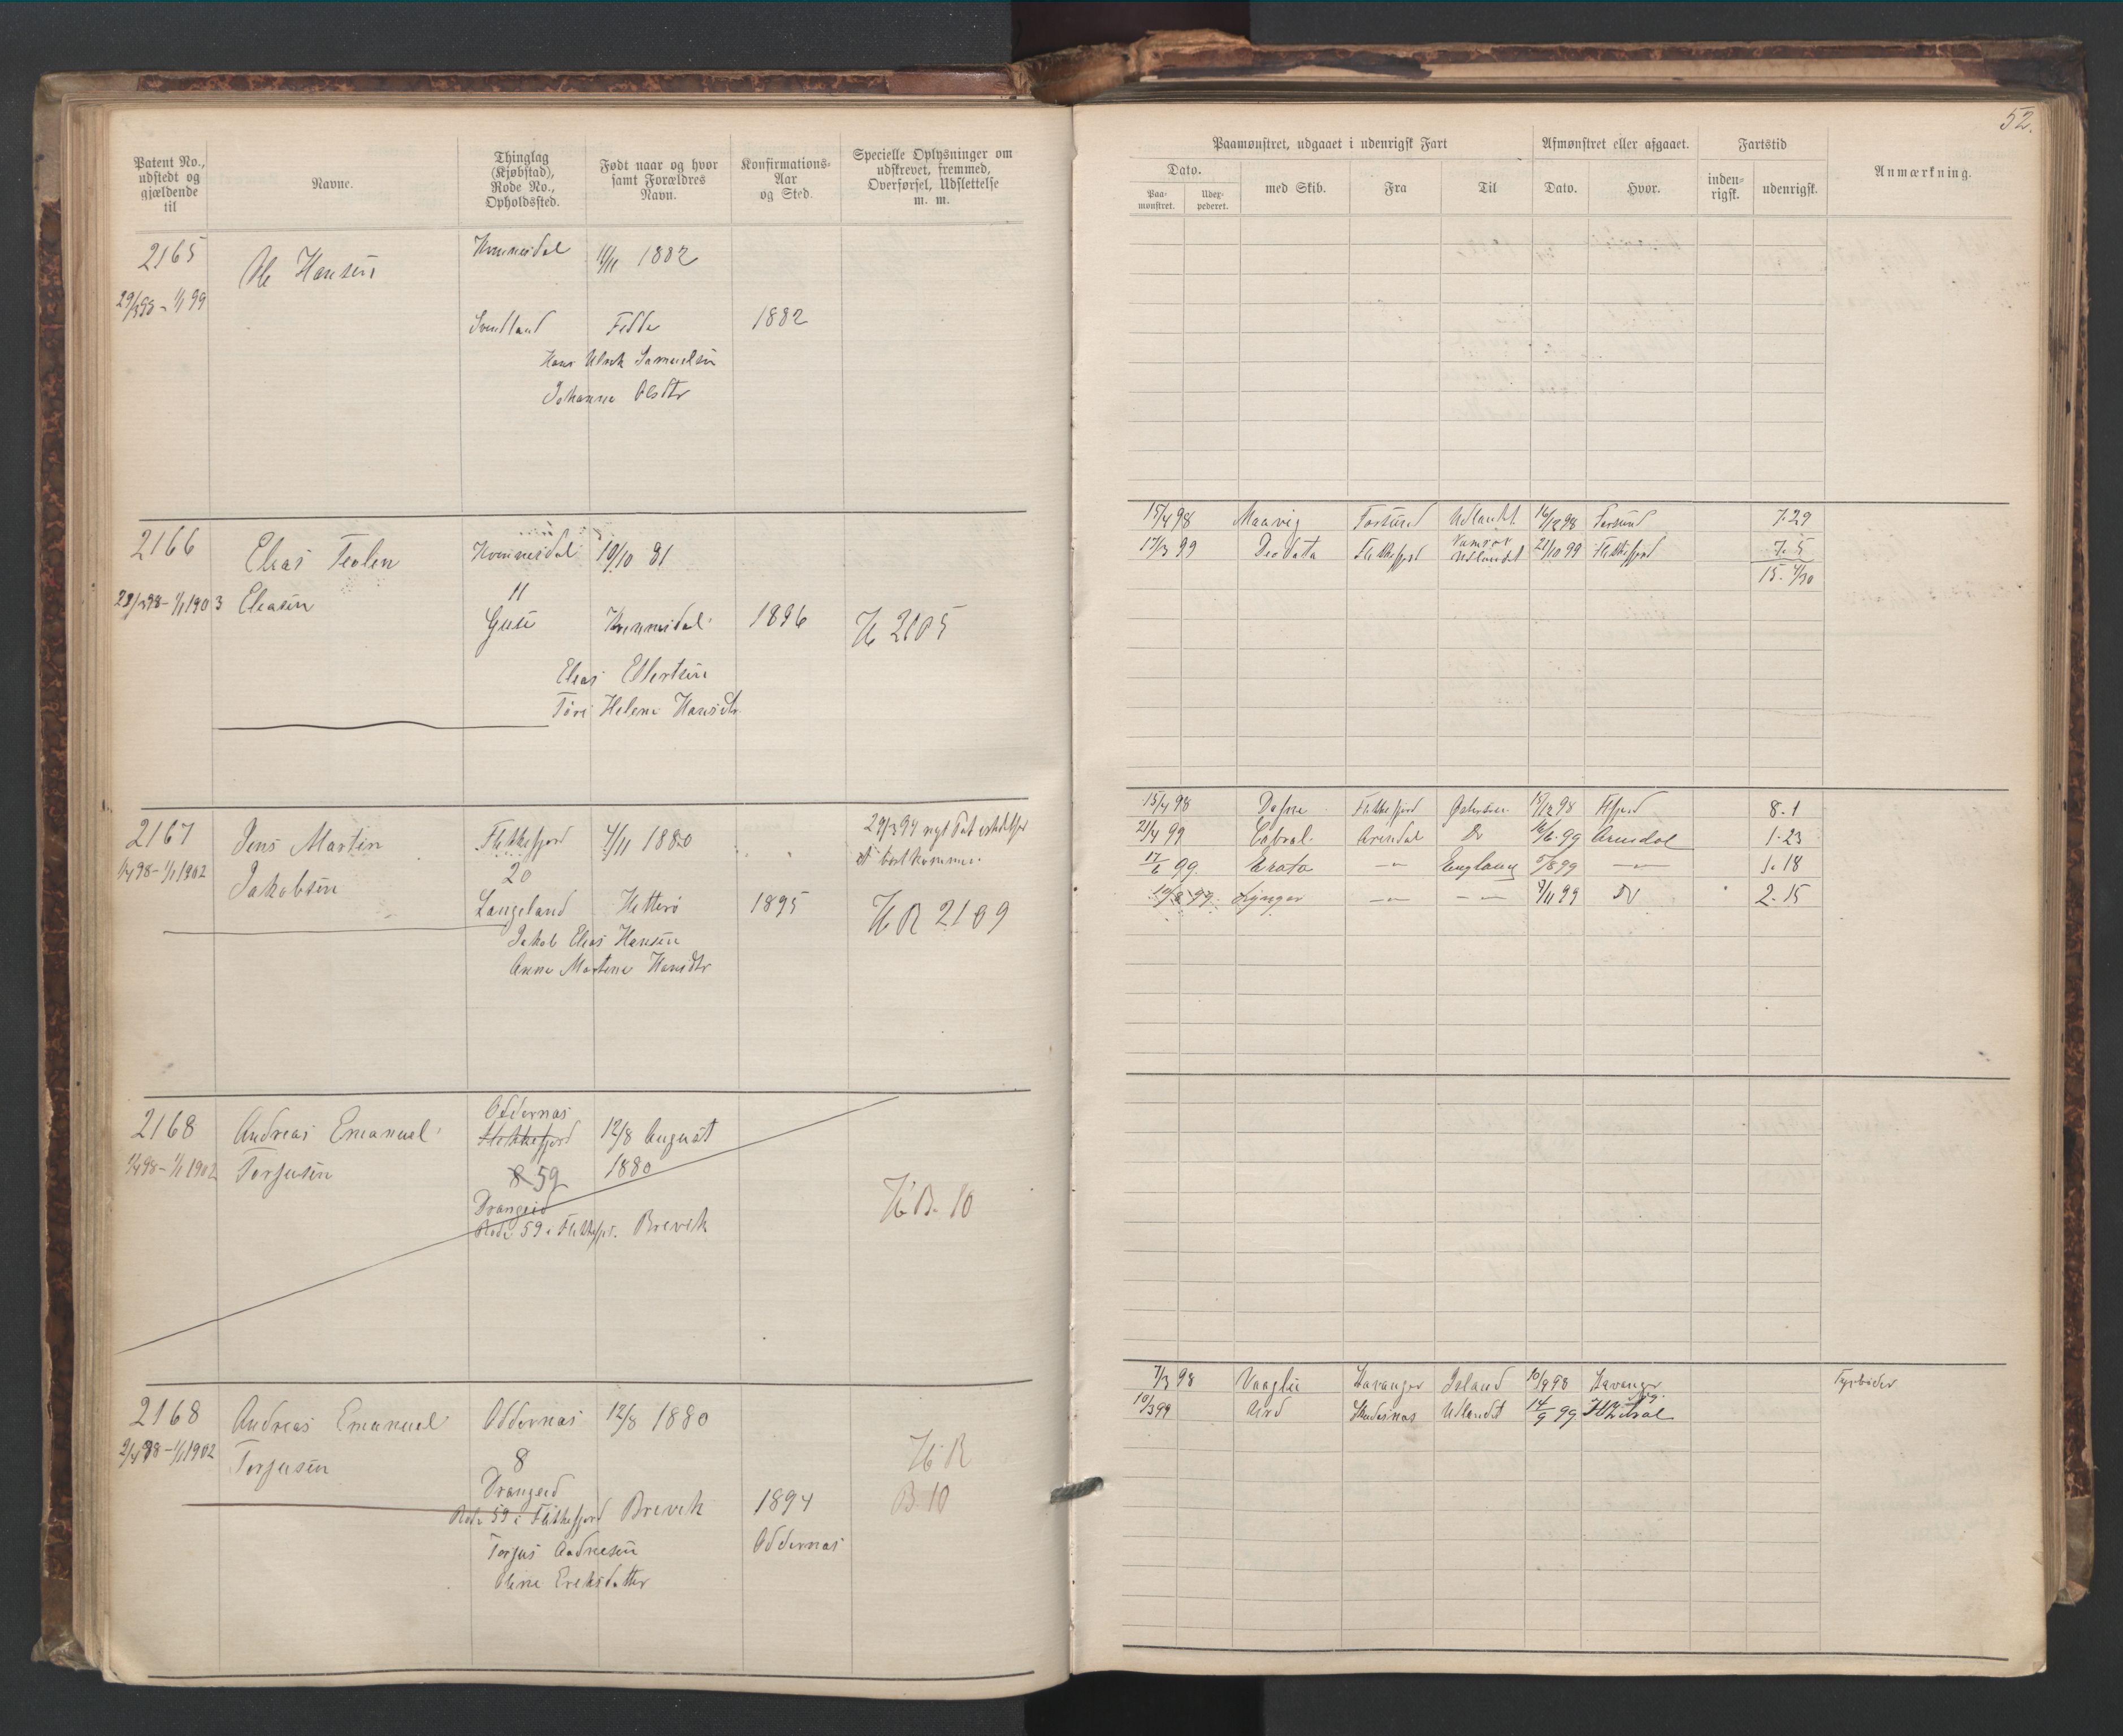 52.
Patent No.,
udstedt og
gjældende
til
Navne.
Thinglag
(Kjøbstad),
Rode No.,
Opholdssted.
Født naar og hvor
samt Forældres
Navn.
Konfirmations-
Aar
og Sted.
Specielle Oplysninger om
udskrevet, fremmed,
Overførsel, Udslettelse
m. m.
Paamønstret, udgaaet i udenrigsk Fart
Dato.
Paa-
mønstret.
Udex-
pederet.
med Skib.
Fra
Til
Afmønstret eller afgaaet.
Dato.
Hvor.
Fartstid
inden-
rigsk.
udenrigsk.
Anmærkning.
2165
Ole Hansen
Kvinnesdal
1882
29/3 98 - 1/1 99
Svindland
Fedde
1882
Hans Ulrik Samuelsen
Johanna Olsdtr
2166
Elias
Kvinnesdal
19/10 81
28/3 98 - 1/1 1903
Eliassen
11
Kvinnesdal
1896
2105
Elias Ellertsen
Helene Hansdtr
15/4 98 Maavig Farsund Udlandet 16/12 98 Farsund 7.29
17/3 99 Deodata Flekkefjord Udlandet 21/10 99 Flekkefjord 7.5
15. 4/30
2167
Jens Martin
Flekkefjord
4/11 1880
1/4 98 - 1/1 1902
Jakobsen
20
Langeland
Hitterø
1895
bortkommen.
H R 2109
Jakob Elias Hansen
Anna Martine Hansdtr
15/4 98 Dafne Flekkefjord Østersøen 15/12 98 Ffjord 8.1
21/4 99 Cabral Arendal Do 16/6 99 Arendal 1.23
17/6 99 Erato - " - England 5/8 99 - " - 1.18
19/8 99 - " - - " - 9/11 99 Do 2.15
2168
Andreas Emanuel
Torjusen
1/4 98 - 1/1 1902
Oddernæs
Flekkefjord
8 59
Drangeid
Rode 59 i Flekkefj.
12/8 August
1880
Brevik
B. 10
2168
Andreas Emanuel
Torjusen
2/4 98 - 1/1 1902
Oddernæs
8
Drangeid
Rode 59 i Flekkefjord
12/8 1880
Brevik
1894
Oddernæs
B 10
Torjus Andresen
Oline Eriksdatter
7/3 98 Vaaglie Stavanger Island 10/9 98 Stavanger
10/3 99 Skudesnæs Udlandet 14/9 99